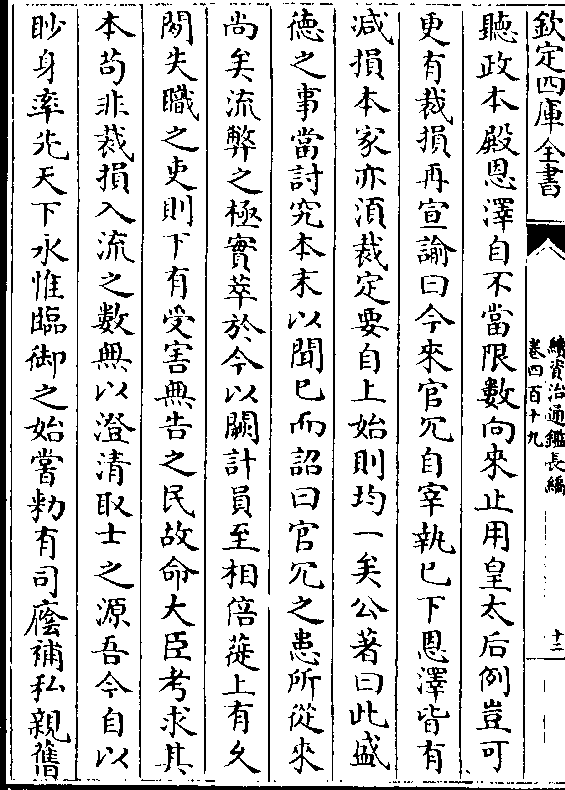 欽定四庫全書
續資治通鑑長編
卷四百十九
十二
聽政本殿恩澤自不當限數向來止用皇太后例豈可
更有裁損再宣諭曰今來官冗自宰執已下恩澤皆有
減損本家亦須裁定要自上始則均一矣公著曰此盛
徳之事當討究本末以聞已而詔曰官冗之患所從來
尚矣流弊之極實萃於今以闕計員至相倍蓰上有久
閑失職之吏則下有受害無告之民故命大臣考求其
本茍非裁損入流之數無以澄清取士之源吾今自以
眇身率先天下永惟臨御之始嘗勑有司廕補私親舊